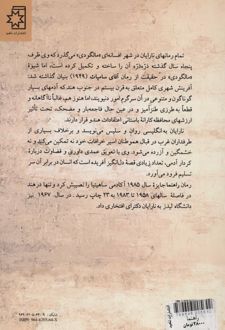 تمام رمانهای نارایان در شهر افسانه‌ای «مالگودی» می‌گذرد که وی ظرف
پنجاه سال گذشته ذره‌ذره آن را ساخته و تکمیل کرده است، اما شیوهٔ
«مالگودی» در حقیقت از رمان آقای سامپات (۱۹۴۹) بنیان گذاشته شد:
آفرینش شهری کامل متعلق به قرن بیستم در جنوب هند که آدمهای بسیار
گوناگون و متنوعی در آن سرگرم امور دنیوی‌اند، اما هنوز هم، غالباً ناآگاهانه و
قطعاً به طرزی طنزآمیز و در عین حال فاجعه‌بار و مضحک، تحت تأثیر
ارزشهای محافظه‌کارانهٔ باستانی اعتقادات هندو قرار دارند.
نارایان به انگلیسی روان و سلیس می‌نویسد و برخلاف بسیاری از
طرفداران غرب در قبال هموطنان اسیر خرافات خود نه تمکین می‌کند و نه
خشمگین و آزرده می‌شود. وی با تعویق عمدی داوری و قضاوت دربارهٔ
کردار آدمی، تعداد زیادی قصهٔ دل‌انگیز آفریده است که انسان در برابر آن سر
تسلیم فرود می‌آورد.
رمان راهنما جایزهٔ سال ۱۹۸۵ آکادمی ساهیتیا را نصیبش کرد و تنها در هند
در فاصلهٔ سالهای ۱۹۵۸ تا ۱۹۸۳ به ۲۳ چاپ رسید. در سال ۱۹۶۷ نیز
دانشگاه لیدز به نارایان دکترای افتخاری داد.
راهنما